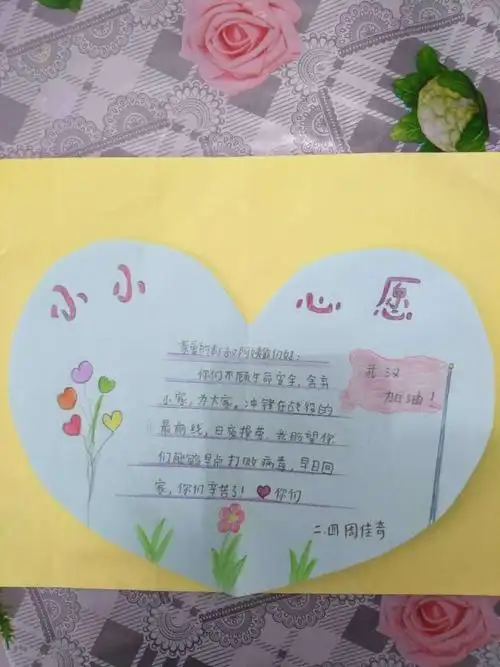 小小
心愿
亲爱的叔叔阿姨们好：
你们不顾生命安全，舍弃
小家，为大家。冲锋在战役的
最前线，日夜操劳，我盼望你
们能够早点打败病毒，早日回
家，你们辛苦了！你们
武汉
加油！
二.四周佳奇